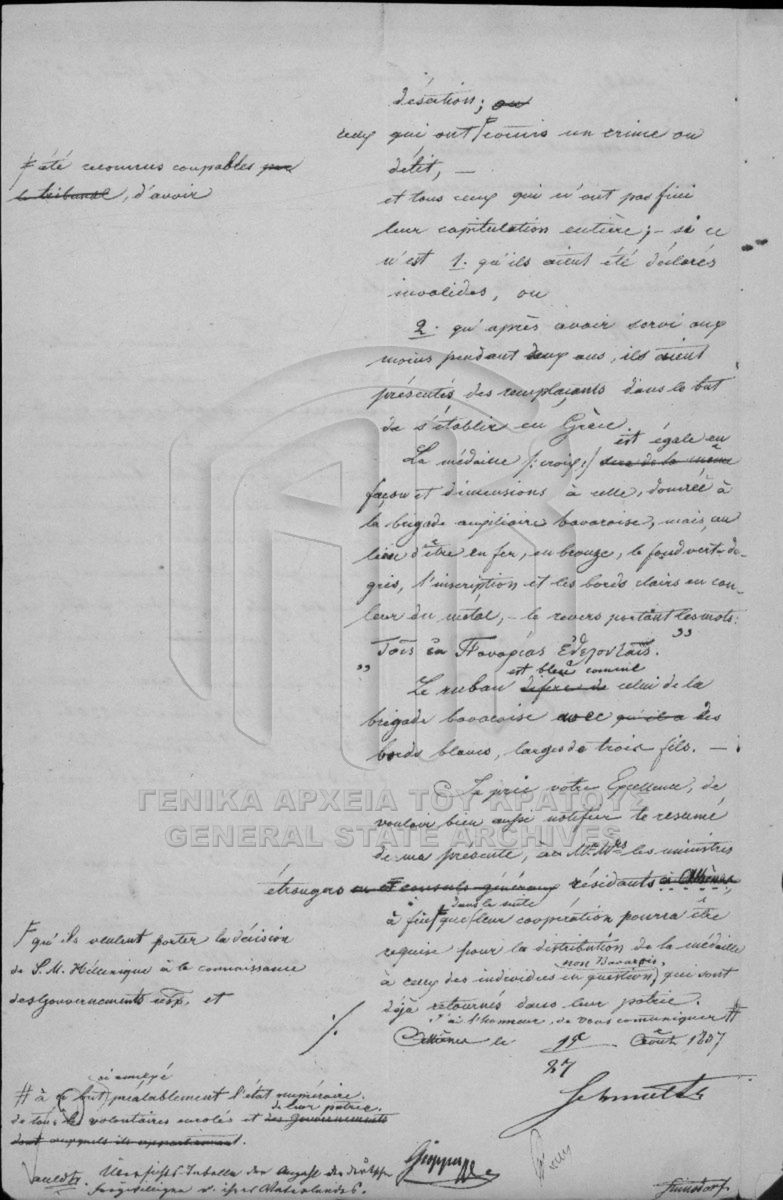 désertion; ou
ceux qui ont commis un crime ou
# été reconnus coupables par
le tribunal, d'avoir
délit, —
et tous ceux qui n'ont pas fini
leur capitulation entière; — si ce
n'est 1. qu'ils aient été déclarés
invalides, ou
2. qu'après avoir servi aux
moins pendant deux ans, ils aient
présentés des remplaçants dans le but
de s'établir en Grèce.
est égale en
La médaille /:croix:/ sera de la même
façon et dimensions à celle, donnée à
la brigade auxiliaire bavaroise, mais, au
lieu d'être en fer, en bronze, le fond vert-de-
gris, l'inscription et les bords clairs en cou-
leur du métal, — le revers portant les mots:
"
est bleu comme
Le ruban celui de la
brigade bavaroise avec qu'il a des
bords blancs, larges de trois fils. —
Je prie votre Excellence, de
vouloir bien aussi notifier le resumé
de ma présente, à Mrs les ministres
étrangers et consuls généraux résidants à Athènes
dans la suite
à fin que leur coopération pourra être
requise pour la distribution de la médaille
non Bavarois,
à ceux des individus en question, qui sont
déjà retournés dans leur patrie.
F qu'ils veulent porter la décision
de S. M. Hellénique à la connaissance
des Gouvernements resp. et
J'ai l'honneur de vous communiquer #
Athènes le 15/27 Août 1837
# à ce but prealablement l'état numéraire
de tous les volontaires enrolés et des Gouvernements
de leur patrie.
dont auxquels ils appartiennent.
Schmaltz
ΓΕΝΙΚΑ ΑΡΧΕΙΑ ΤΟΥ ΚΡΑΤΟΥΣ
GENERAL STATE ARCHIVES